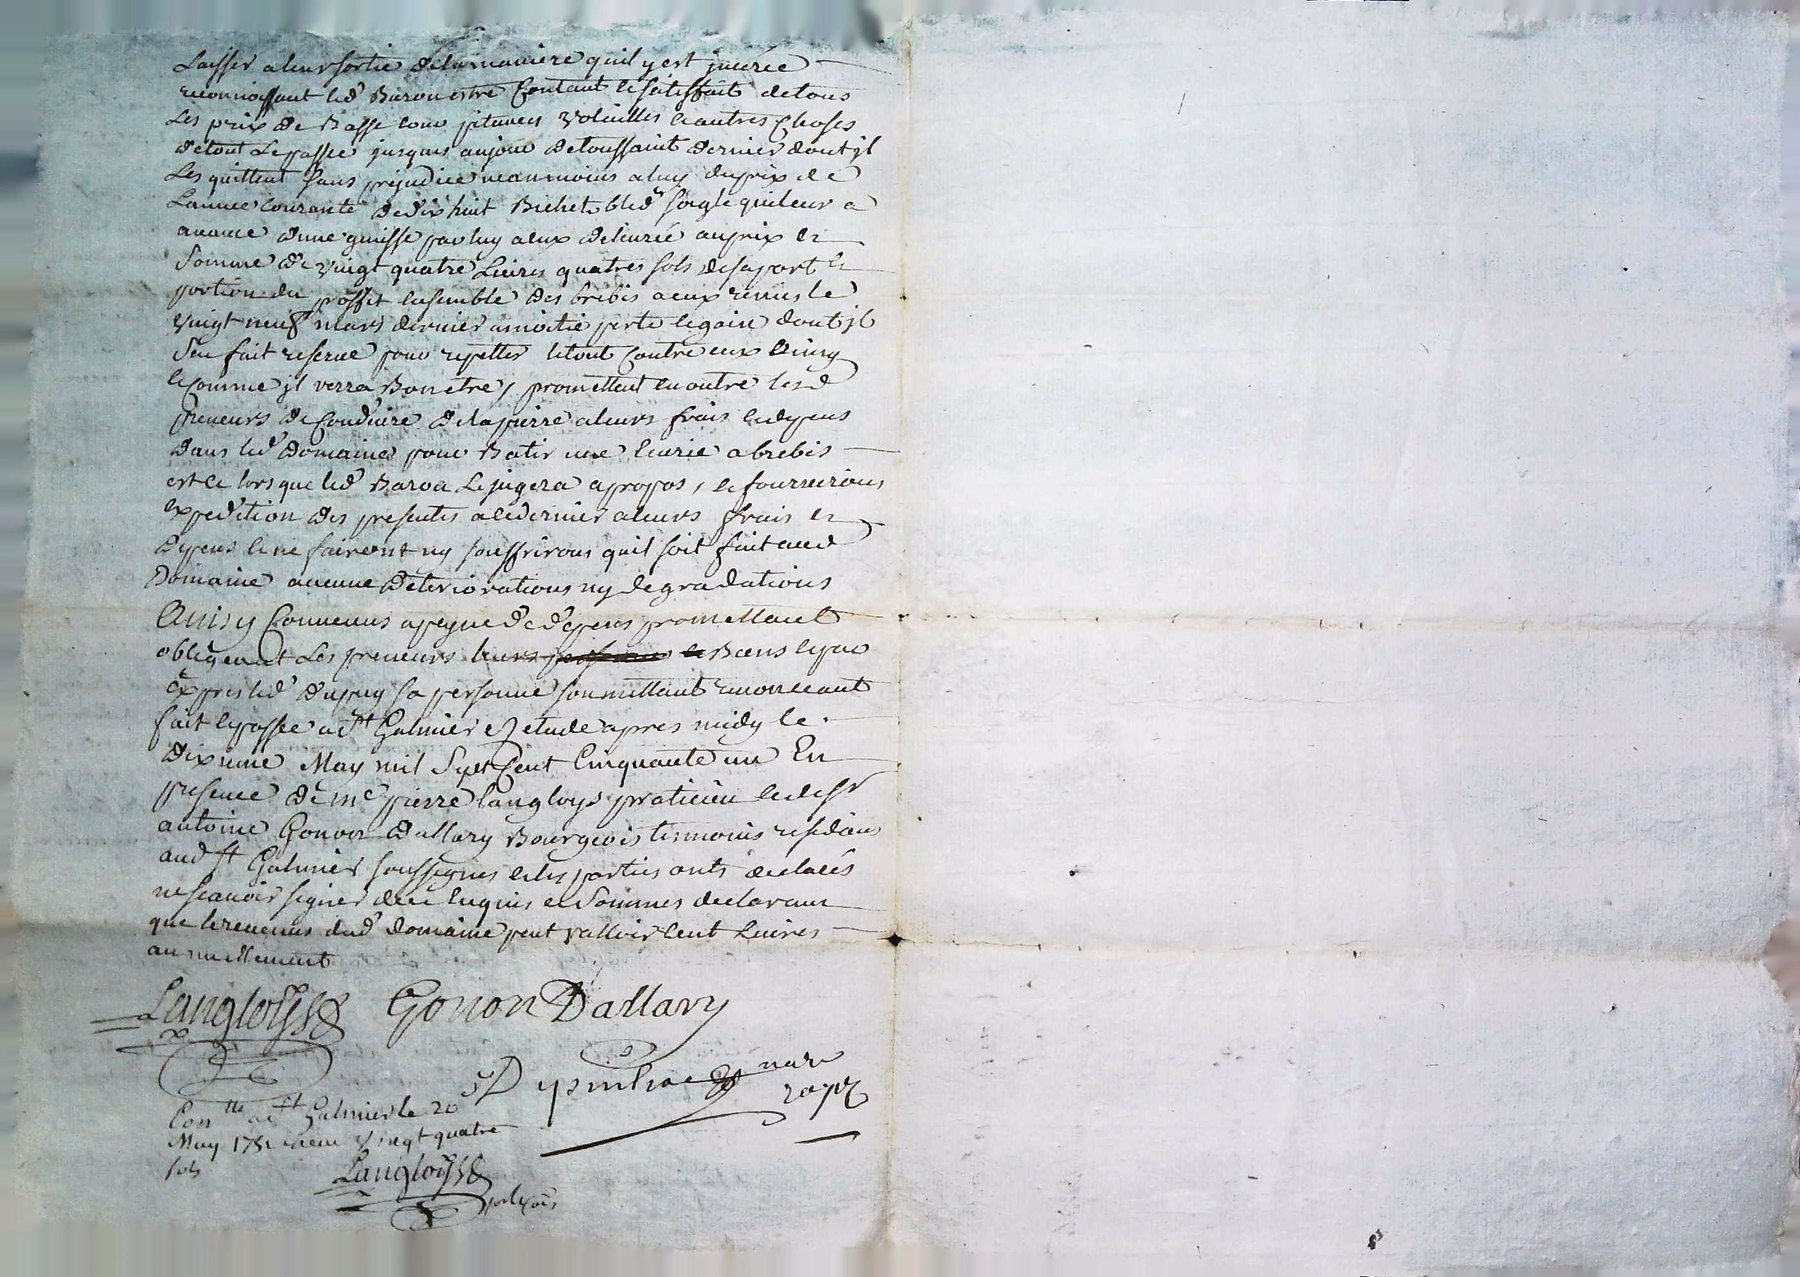 Laisser a leur sortie de la maniere quil y est jnserée
reconnoissant led^t Baron estre Contant et satisfait de tous
Les prix de Basse cour pitances Volailles et autres Choses
de tout Le passée jusques aujour de toussaint dernier dont jl
Les quittent sans préjudice neanmoins a luy du prix de
L'année courante de dix huit Bichets bled soigle quil leur a
avancé par luy a eux delivrée au prix et
Somme de vingt quatre Livres quatres sols de sa part et
portion du proffit ensemble des brebis a eux remis le
vingt neuf mars dernier a moitié perte et gain dont jl
Sen fait reserve pour repetter letout Contre eux
et Comme jl verra Bon etre, promettent en outre lesd
preneurs de Conduire de la pierre a leurs frais et depens
dans led^t Domaine pour Batir une Ecurie a brebis
et ce lors que led^t Baron Le jugera apropos, et fourniront
expedition des presentes a ce dernier a leurs frais et
depens et ne fairont ny souffriront quil soit fait aud
Domaine aucune deteriorations ny degradations
Ainsy Convenus a peyne de depens promettant
obligeant Les preneurs leurs Biens et par
Exprès led^t Dupuy sa personne soumettant renonceant
fait et passée a S^t Galmier etude apres midy le
dixieme May mil Sept Cent Cinquante un En
presence de m^e pierre Langloys praticien et de s^r
antoine Gonon Dallary Bourgeois temoins residans
aud S^t Galmier soussignes et les parties onts declarés
ne scavoir signer de ce Enquis et Sommes declarant
que le revenus dud^t domaine peut valloir Cent Livres
annuellement
Langloys Gonon Dallary
no^re
royal
Con^lle a S^t Galmier le 20
May 1751 receu vingt quatre
sols
Langloys